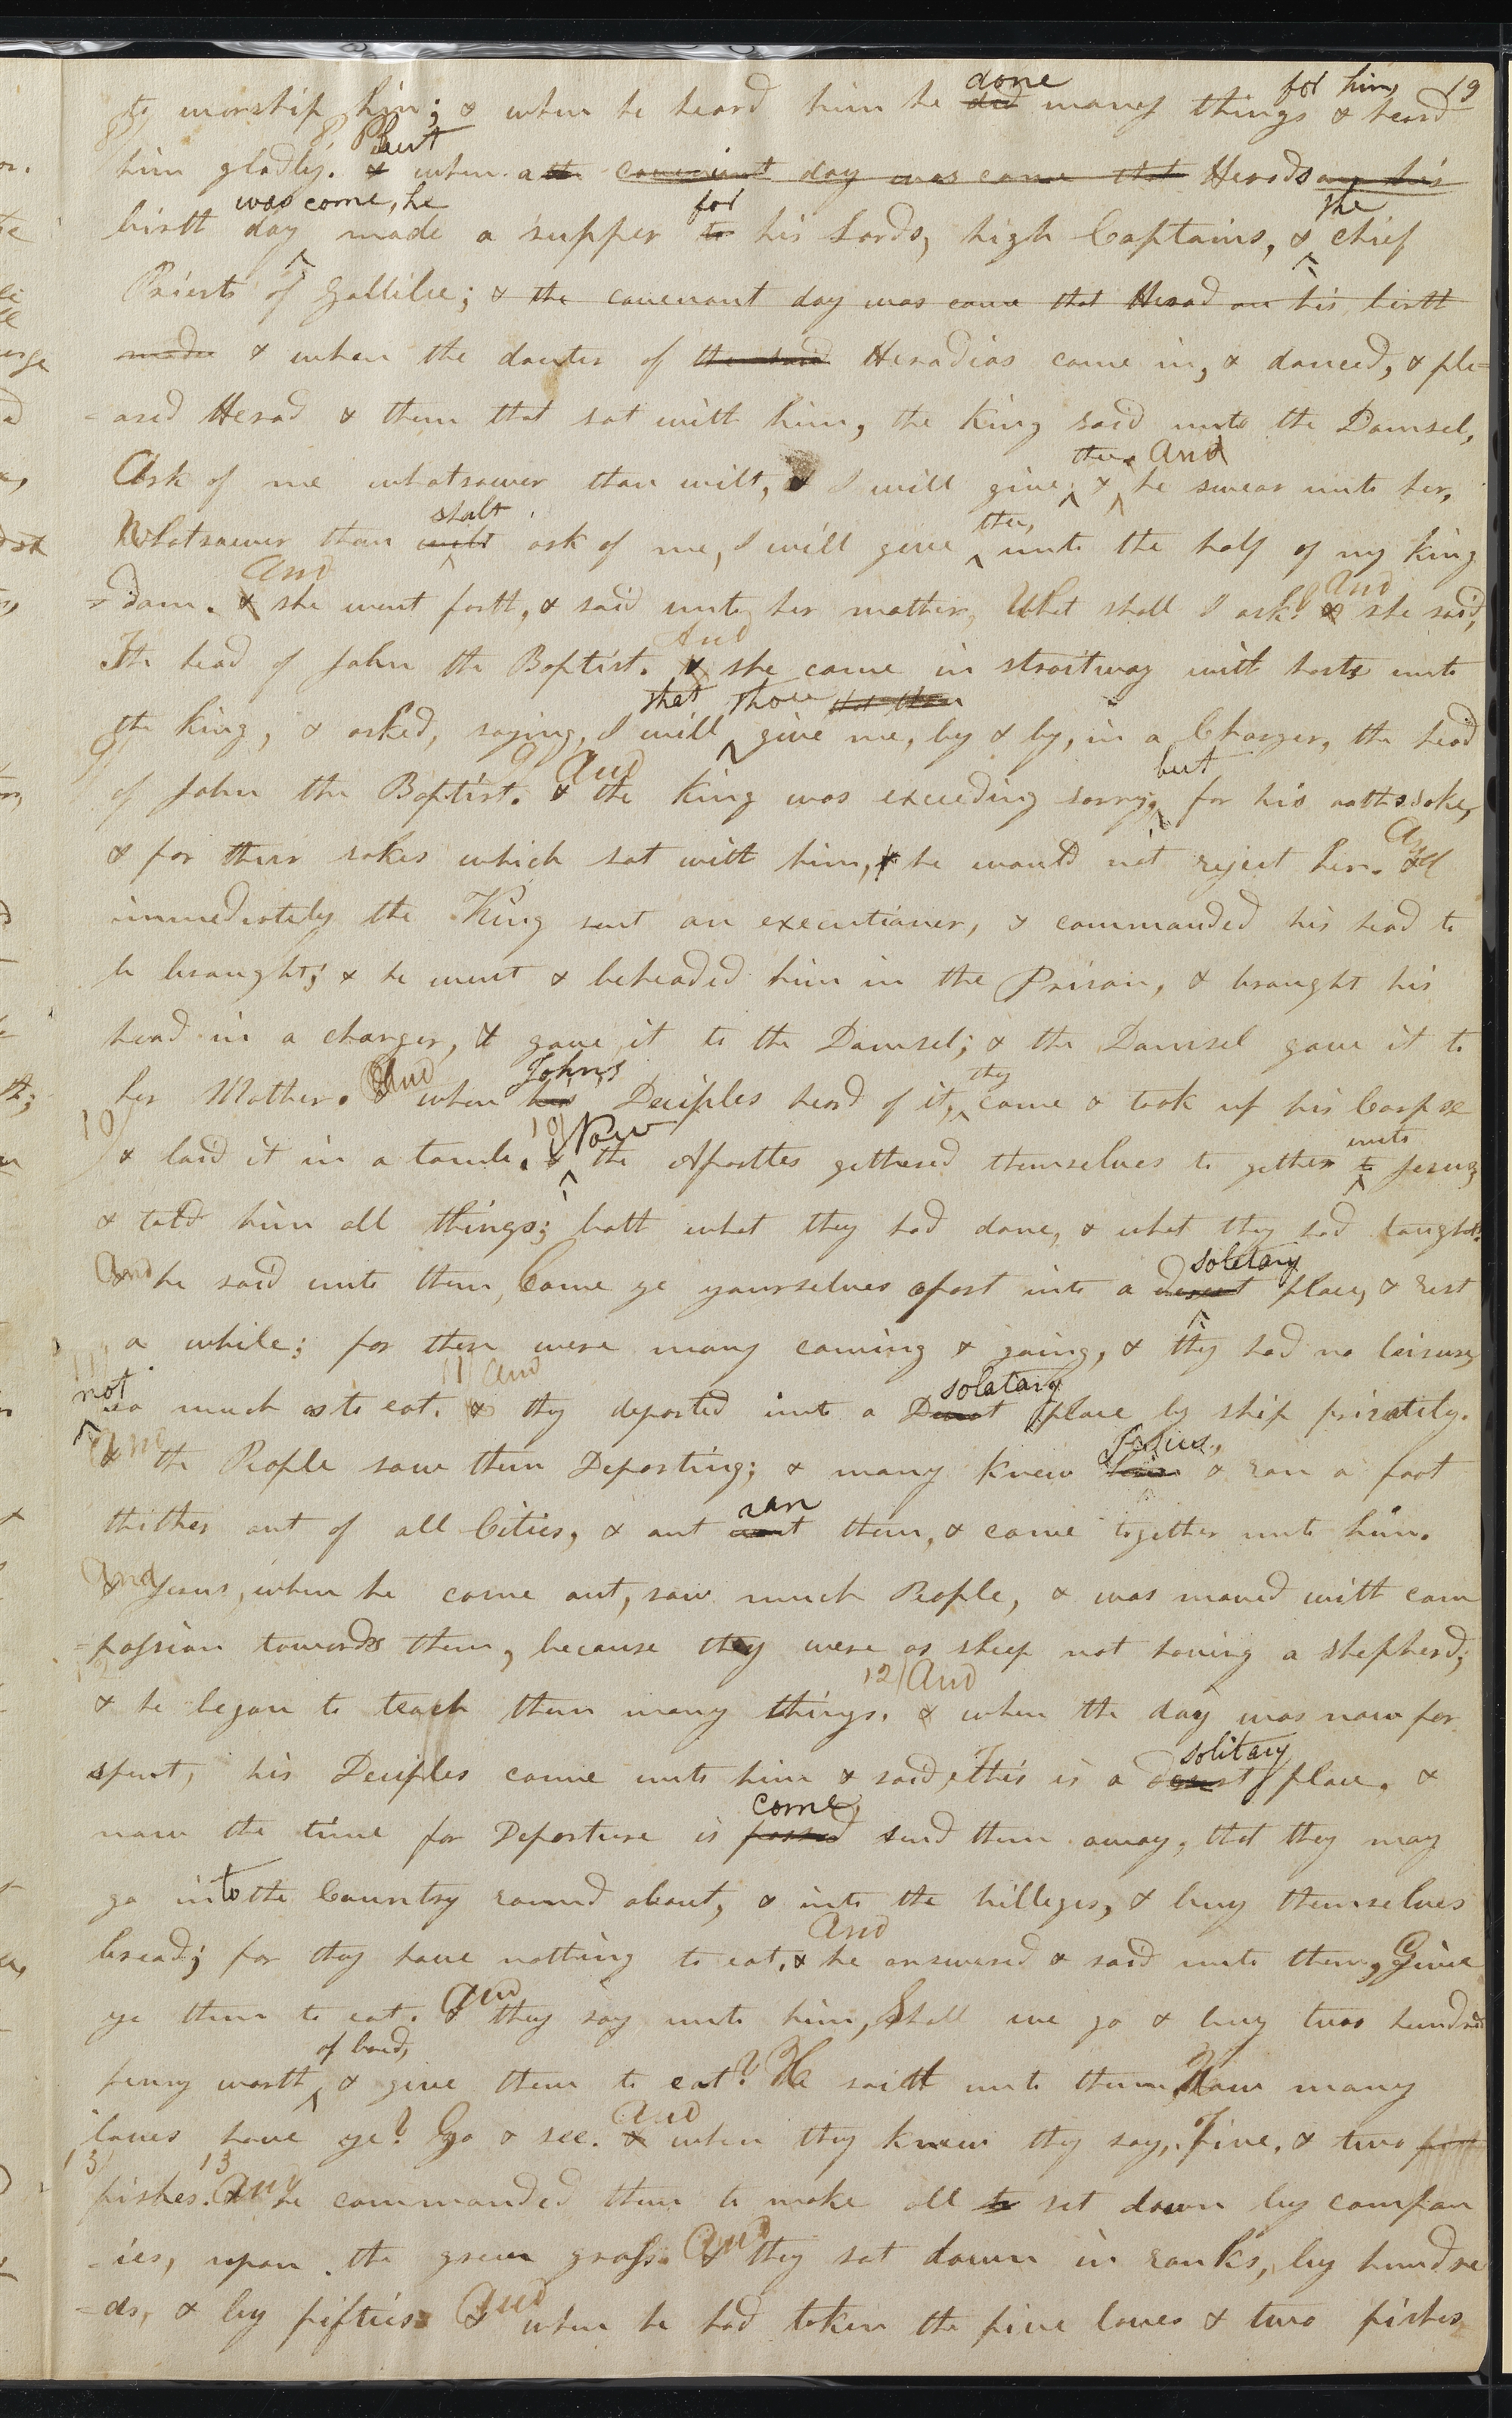 19
to worship him; & when he heard him he did done many things for him, & heard
8 him gladly. 8 & But when a the convenient day was come that Herods on his
birth day was come, he made a supper to for his Lords, high Captains, & the chief
Priests of Gallilee; & the convenant day was come that Herod on his birth
made & when the dauter of the said Herodias came in, & danced, & ple=
=ased Herod & them that sat with him, the king said unto the Damsel,
Ask of me whatsoever thou wilt, & I will give thee. & And he swear unto her,
Whatsoever thou wilt shalt ask of me, I will give thee, unto the half of my king
=dom. & And she went forth, & said unto her mother, What shall I ask? & And she said,
The head of John the Baptist. & And she came in straitway with haste unto
the king, & asked, saying, I will that thou that thou give me, by & by, in a Charger, the head
9 of John the Baptist. 9 & And the King was exceeding sorry; but for his oaths sake,
& for their sakes which sat with him, & he would not reject her. & And
immediately the King sent an executioner, & commanded his head to
be brought; & he went & beheaded him in the Prison, & brought his
head in a charger, & gave it to the Damsel; & the Damsel gave it to
her Mother. & And when his John's Deciples heard of it, they came & took up his Corpse
10 & laid it in a tomb. 10 & Now the Aposttes gethered themselves to gether to unto Jesus,
& told him all things; both what they had done, & what they had taught.
& And he said unto them, Come ye yourselves apart into a desert soletary place, & rest
a while; for there were many coming & going, & they had no leisure,
11 not so much as to eat. 11 & And they departed into a Desert solatary place by ship privately.
& And the People saw them Departing; & many knew him Jesus, & ran a foot
thither out of all Cities, & out went ran them, & came together unto him.
& And Jesus, when he came out, saw much People, & was moved with com
=passion towards them, because they were as sheep not having a shepherd;
12 & he began to teach them many things. 12 & And when the day was now far
spent, his Deciples came unto him & said, This is a desert solitary place, &
now the time for Departure is passed come, send them away, that they may
go into the Country round about, & into the villeges, & buy themselves
bread; for they have nothing to eat, & And he answered & said unto them, Give
ye them to eat. & And they say unto him, Shall we go & buy two hundred
penny worth of bread, & give them to eat? He saith unto them, How many
loaves have ye? Go & see. & And when they knew they say, Five, & two fish
13 fishes. 13 & And he commanded them to make all to set down by compan
=ies, upon the green grass. & And they sat down in ranks, by hundre
=ds, & by fifties. & And when he had taken the five loves & two fishes,